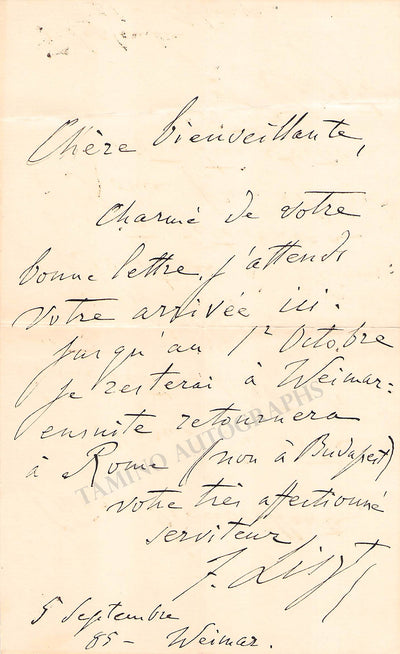 Chère bienveillante,
Charmé de votre
bonne lettre, j'attends
votre arrivée ici.
Jusqu'au 1r Octobre
je resterai à Weimar:
ensuite retournera
à Rome (non à Budapest)
votre très affectionné
serviteur
F. Liszt
5 Septembre
85 – Weimar.
TAMINO AUTOGRAPHS